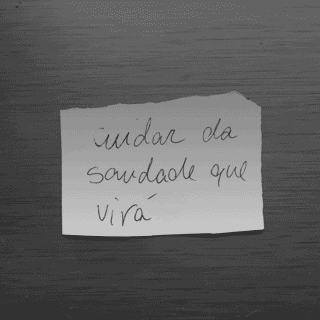 cuidar da
saudade que
virá